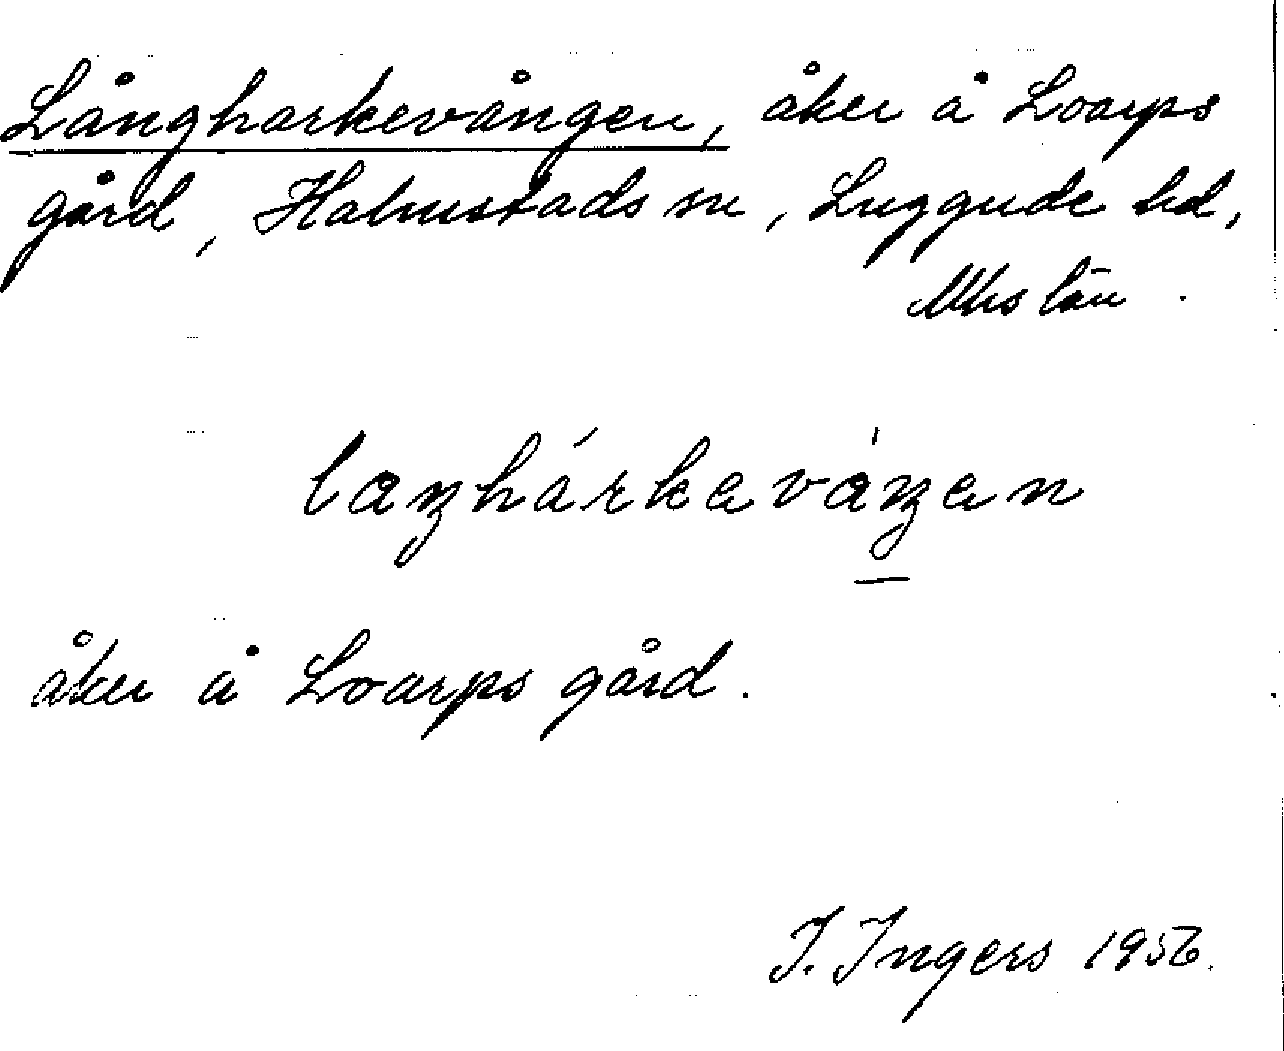 Långharkevången, åker å Loarps
gård, Halmstads sn, Luggude hd,
Mhs län.
laŋhárkavàŋan
åker å Loarps gård.
I. Ingers 1956.